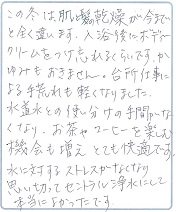 この冬は肌・髪乾燥が今まで
と全く違います。入浴後にボディー
クリームをつけ忘れるくらいです。か
ゆみもおきません。台所仕事に
よる手荒れも軽くなりました。
水道水との使い分けの手間がな
くなり、お茶やコーヒーを楽しむ
機会も増えとても快適です。
水に対するストレスがなくなり
思い切ってセントラル浄水にして
本当によかったです。